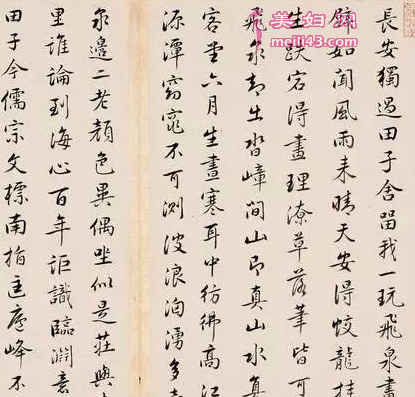 長安獨過田子舍留我一玩飛泉畫
壁如聞風雨来晴天安得蛟龍挂
生跌宕得畫理潦草落筆皆可
飛泉却出沓嶂間山即真山水真
客堂六月生晝寒耳中彷彿高江
源潭窈窕不可測波浪洶湧多
泉邊二老顔色異偶坐似是莊與
里誰論到海心百年詎識臨淵意
田子今儒宗文標南指匡廬峰不
美妇网
meifu43.com